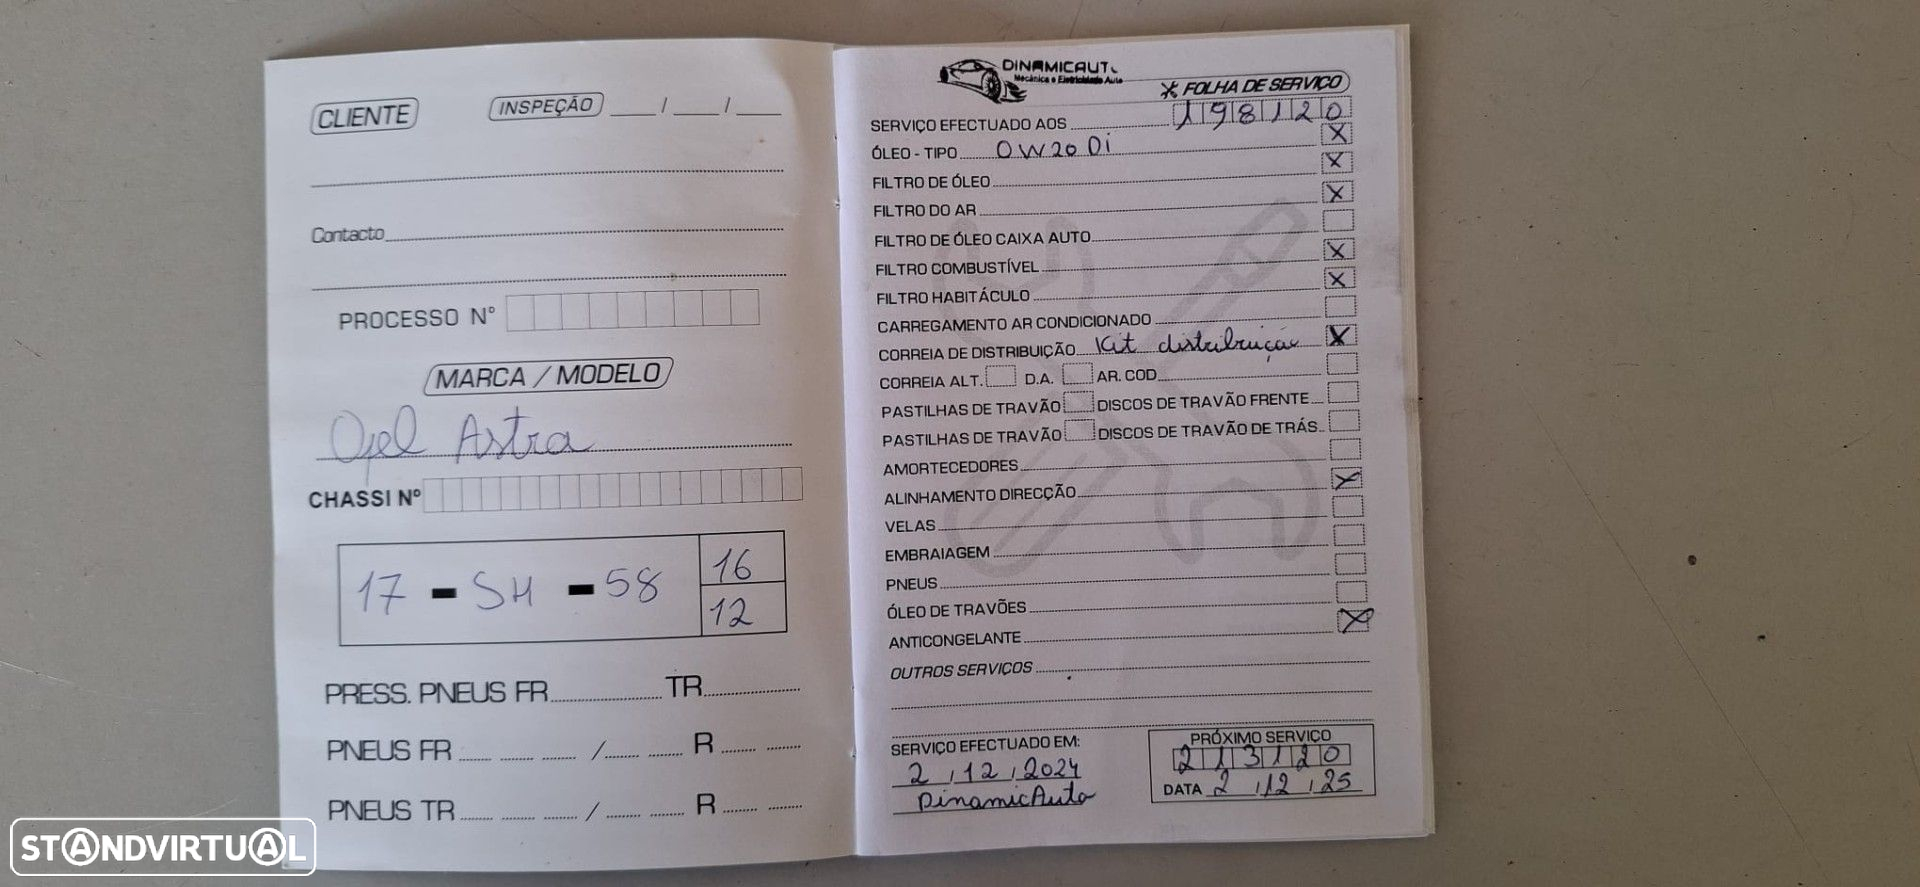 CLIENTE INSPEÇÃO ___/___/___
Contacto
PROCESSO Nº
MARCA / MODELO
Opel Astra
CHASSI Nº
17 - SH - 58 16
12
PRESS. PNEUS FR TR
PNEUS FR / R
PNEUS TR / R
DINAMICAUTO
Mecânica e Eletricidade Auto
FOLHA DE SERVIÇO
SERVIÇO EFECTUADO AOS 198120
ÓLEO - TIPO 0W20 Di X
FILTRO DE ÓLEO X
FILTRO DO AR X
FILTRO DE ÓLEO CAIXA AUTO
FILTRO COMBUSTÍVEL X
FILTRO HABITÁCULO X
CARREGAMENTO AR CONDICIONADO
CORREIA DE DISTRIBUIÇÃO Kit distribuição X
CORREIA ALT. D.A. AR. COD
PASTILHAS DE TRAVÃO DISCOS DE TRAVÃO FRENTE
PASTILHAS DE TRAVÃO DISCOS DE TRAVÃO DE TRÁS
AMORTECEDORES
ALINHAMENTO DIRECÇÃO X
VELAS
EMBRAIAGEM
PNEUS
ÓLEO DE TRAVÕES
ANTICONGELANTE X
OUTROS SERVIÇOS
SERVIÇO EFECTUADO EM:
2, 12, 2024
DinamicAuto
PRÓXIMO SERVIÇO
213120
DATA 2, 12, 25
STANDVIRTUAL